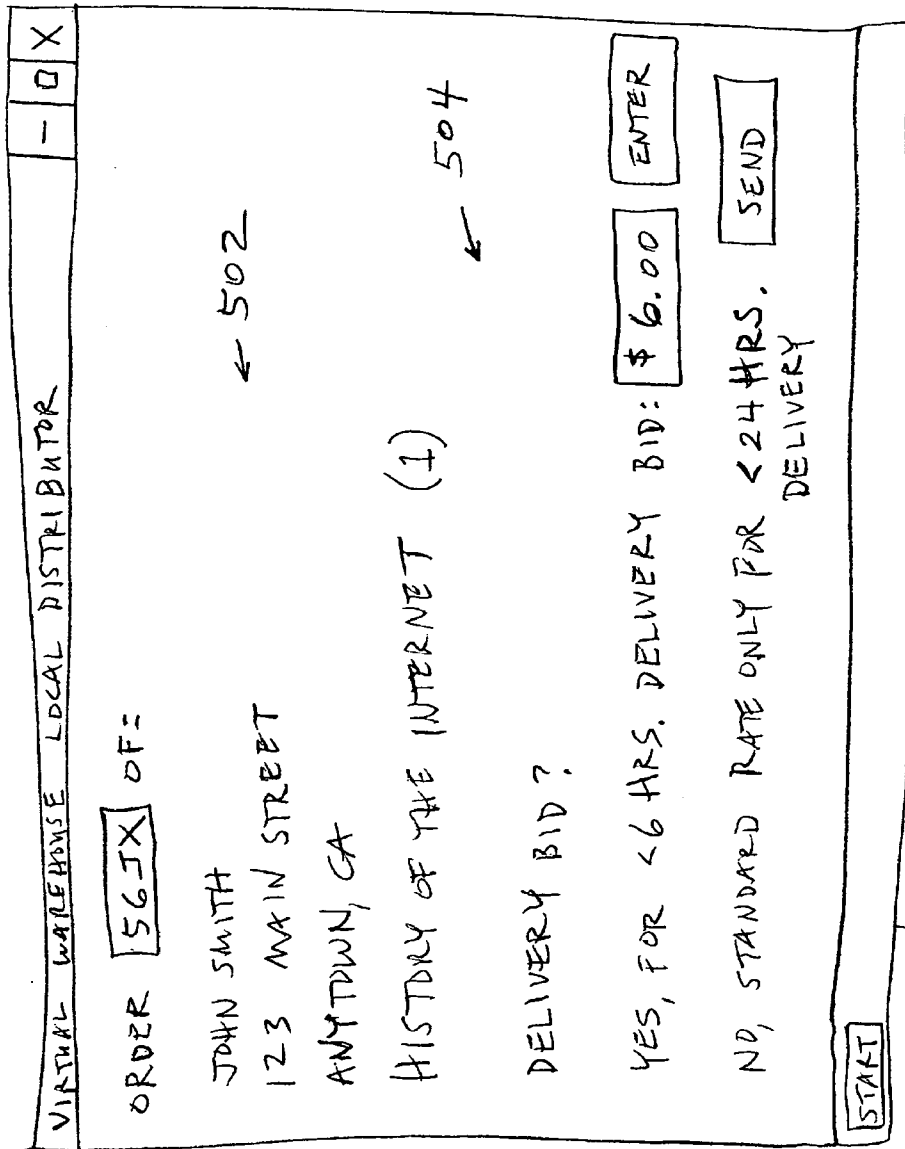 VIRTUAL WAREHOUSE LOCAL DISTRIBUTOR - □ X
ORDER 56JX OF:
JOHN SMITH
123 MAIN STREET
ANYTOWN, CA
← 502
HISTORY OF THE INTERNET (1)
← 504
DELIVERY BID?
YES, FOR <6 HRS. DELIVERY BID: $ 6.00 ENTER
NO, STANDARD RATE ONLY FOR <24 HRS. SEND
DELIVERY
START